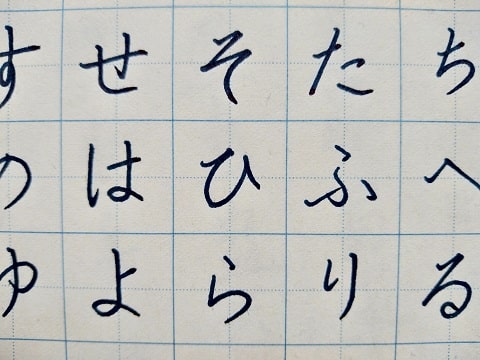 すせそたち
のはひふへ
ゆよらりる